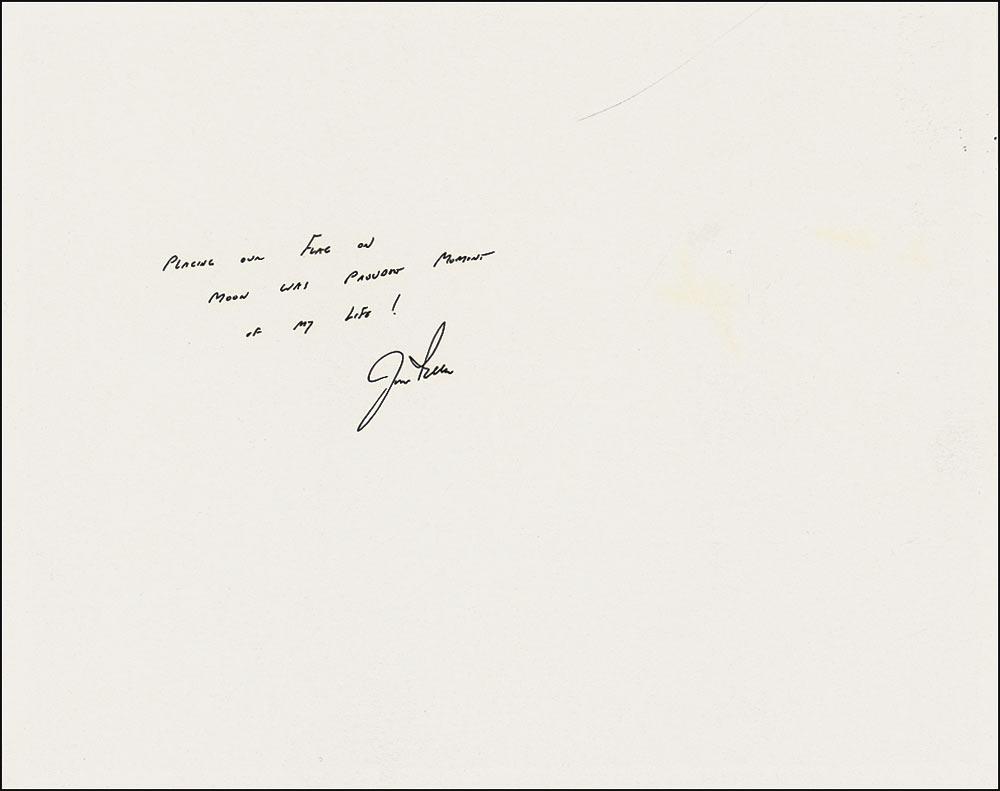 Placing our Flag on
Moon was Proudest Moment
of my Life!
Jim